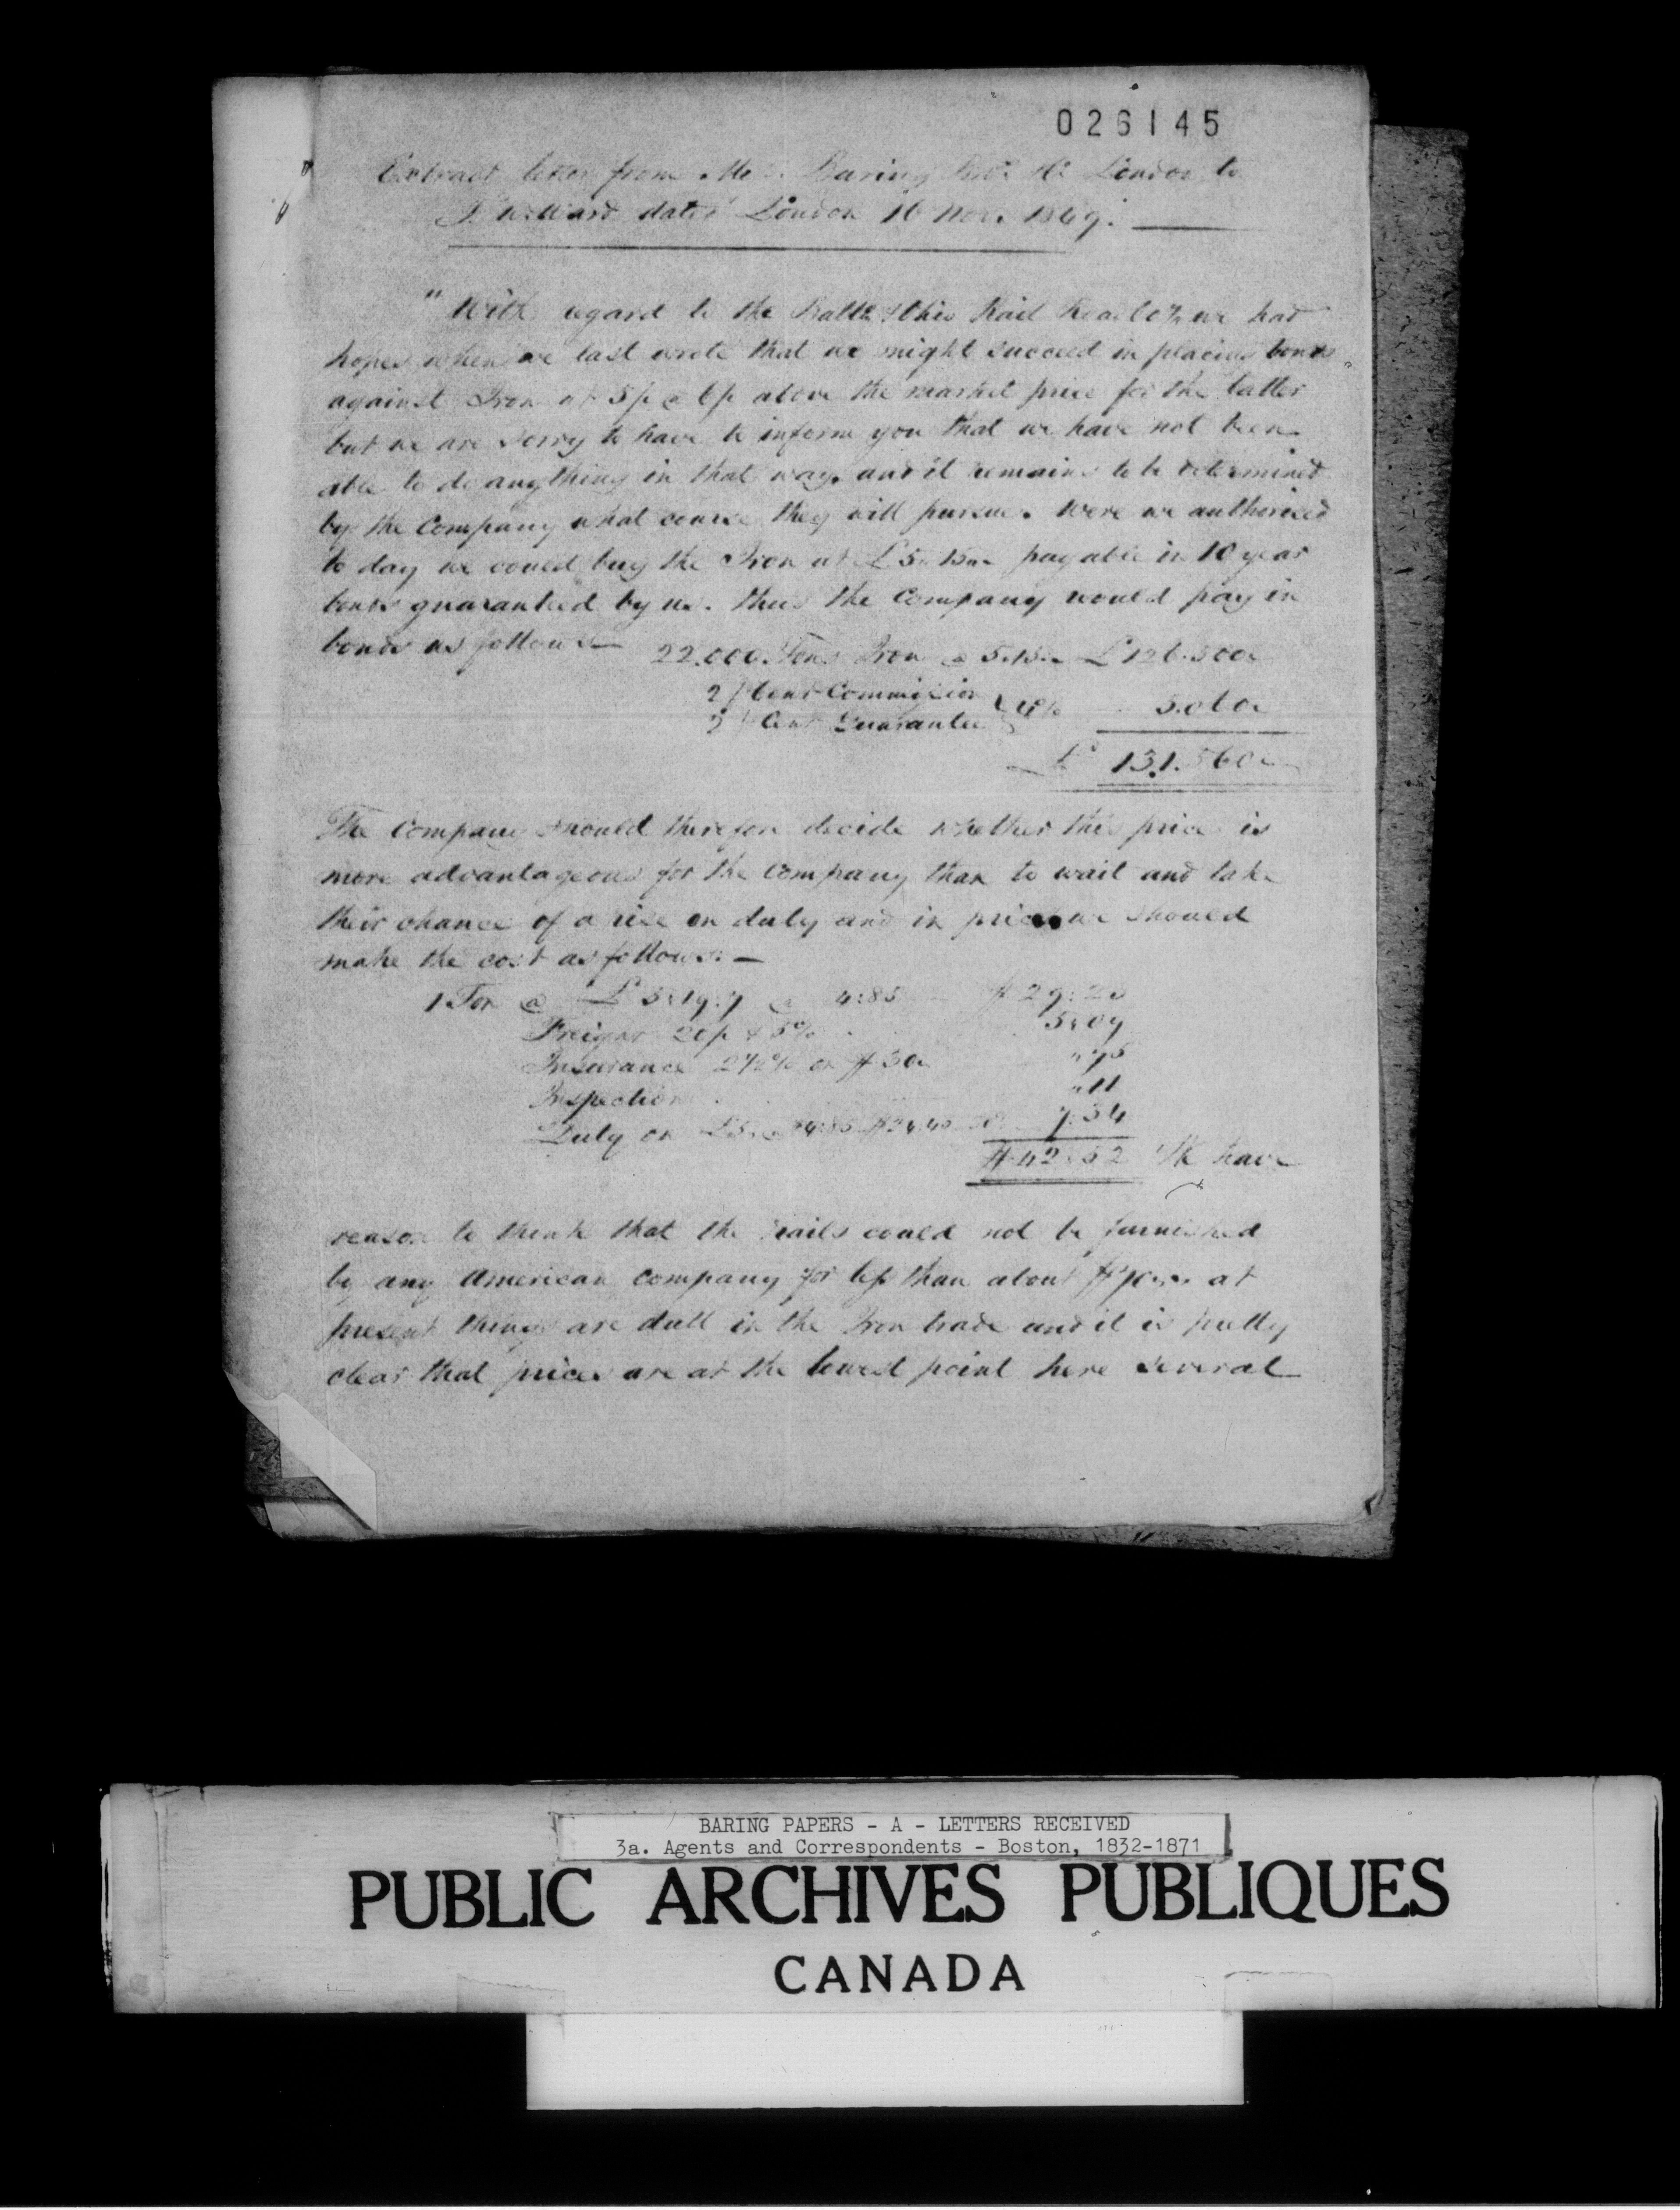 026145
Extract letter from Mess. Baring Bros. & Co. London to
T. W. Ward dated London 16 Nov. 1849.
"With regard to the Balt. & Ohio Rail Road Co. we had
hopes when we last wrote that we might succeed in placing bonds
against Iron at 5/ @ 6/ above the market price for the latter
but we are sorry to have to inform you that we have not been
able to do any thing in that way, and it remains to be determined
by the Company what course they will pursue. Were we authorised
to day we could buy the Iron at £5.15.. payable in 10 year
bonds guaranteed by us. thus the Company would pay in
bonds as follows —
22.000. Tons Iron @ 5.15.. £126.500..
2 p Cent Commission
2 p Cent Guarantee } 4% 5.060..
£ 131.560..
The Company should therefore decide whether this price is
more advantageous for the Company than to wait and take
their chance of a rise on duty and in price, we should
make the cost as follows: —
1 Ton @ £5:19:7 @ 4:85 $29:
Freight 20/ & 5% 5:09
Insurance 2½% on $30.. "75
Inspection "11
Duty on £5.. @ 4:85 7:34
$42:52 We have
reason to think that the rails could not be furnished
by any American Company for less than about at
present things are dull in the Iron trade and it is pretty
clear that prices are at the lowest point here several
BARING PAPERS - A - LETTERS RECEIVED
3a. Agents and Correspondents - Boston, 1832-1871
PUBLIC ARCHIVES PUBLIQUES
CANADA